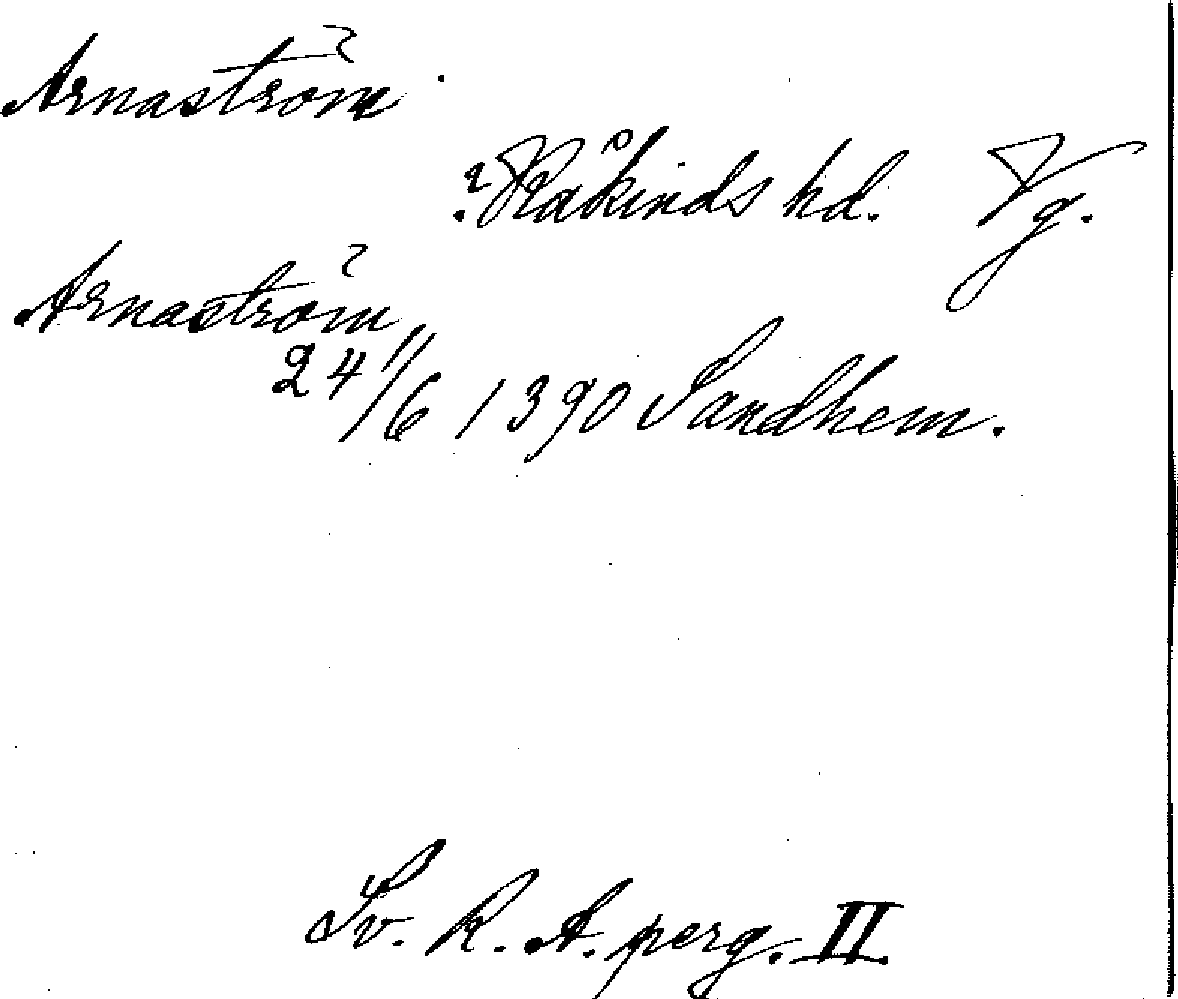 Arnaström
? Råkinds hd. Vg.
Arnaström
24/6 1390 Sandhem.
Sv. R. A. perg. II.